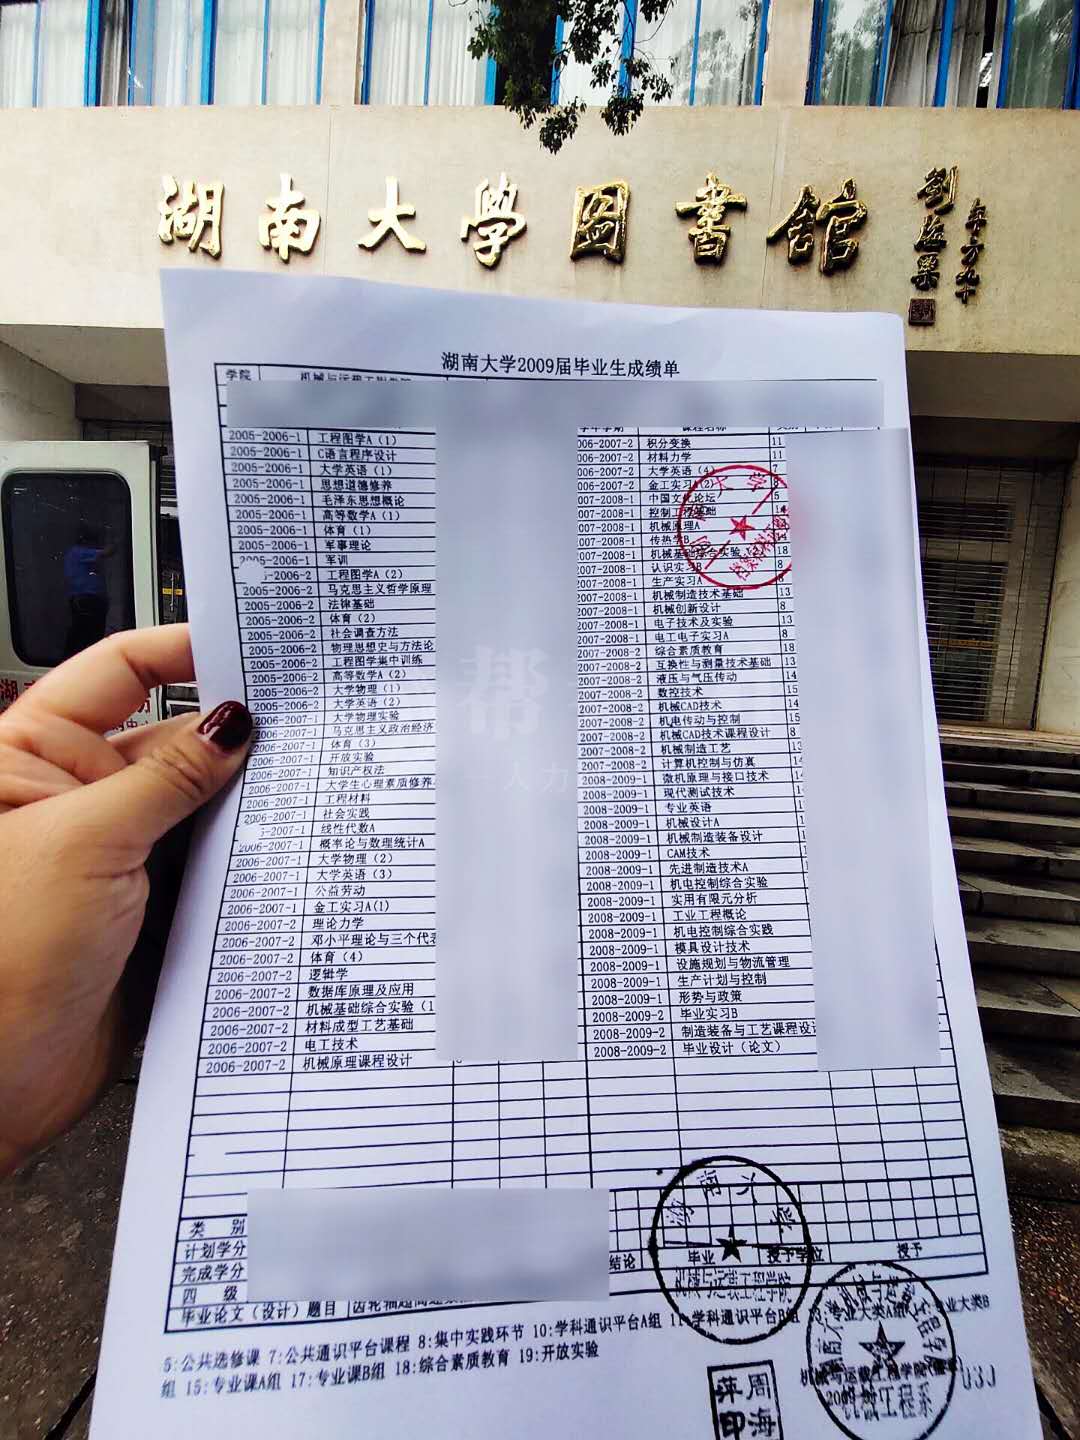 湖南大學圖書館
湖南大学2009届毕业生成绩单
学院 机械与运载工程学院
2005-2006-1 工程图学A（1）
2005-2006-1 C语言程序设计
2005-2006-1 大学英语（1）
2005-2006-1 思想道德修养
2005-2006-1 毛泽东思想概论
2005-2006-1 高等数学A（1）
2005-2006-1 体育（1）
2005-2006-1 军事理论
2005-2006-1 军训
5-2006-2 工程图学A（2）
2005-2006-2 马克思主义哲学原理
2005-2006-2 法律基础
2005-2006-2 体育（2）
2005-2006-2 社会调查方法
2005-2006-2 物理思想史与方法论
2005-2006-2 工程图学集中训练
2005-2006-2 高等数学A（2）
2005-2006-2 大学物理（1）
2005-2006-2 大学英语（2）
2006-2007-1 大学物理实验
2006-2007-1 马克思主义政治经济
2006-2007-1 体育（3）
2006-2007-1 开放实验
2006-2007-1 知识产权法
2006-2007-1 大学生心理素质修养
2006-2007-1 工程材料
2006-2007-1 社会实践
-2007-1 线性代数A
2006-2007-1 概率论与数理统计A
2006-2007-1 大学物理（2）
2006-2007-1 大学英语（3）
2006-2007-1 公益劳动
2006-2007-1 金工实习A(1)
2006-2007-2 理论力学
2006-2007-2 邓小平理论与三个代表
2006-2007-2 体育（4）
2006-2007-2 逻辑学
2006-2007-2 数据库原理及应用
2006-2007-2 机械基础综合实验（1
2006-2007-2 材料成型工艺基础
2006-2007-2 电工技术
2006-2007-2 机械原理课程设计
006-2007-2 积分变换 11
006-2007-2 材料力学 11
006-2007-2 大学英语（4） 7
006-2007-2 金工实习A(2) 8
007-2008-1 中国文化论坛 5
007-2008-1 控制工程基础
007-2008-1 机械原理A
007-2008-1 传热学B
007-2008-1 机械基础综合实验 18
007-2008-1 认识实习B 8
007-2008-1 生产实习A 8
2007-2008-1 机械制造技术基础 13
2007-2008-1 机械创新设计 8
2007-2008-1 电子技术及实验 13
2007-2008-1 电工电子实习A 8
2007-2008-2 综合素质教育 18
2007-2008-2 互换性与测量技术基础 13
2007-2008-2 液压与气压传动 14
2007-2008-2 数控技术 15
2007-2008-2 机械CAD技术 14
2007-2008-2 机电传动与控制 15
2007-2008-2 机械CAD技术课程设计 8
2007-2008-2 机械制造工艺
2007-2008-2 计算机控制与仿真
2008-2009-1 微机原理与接口技术
2008-2009-1 现代测试技术
2008-2009-1 专业英语
2008-2009-1 机械设计A
2008-2009-1 机械制造装备设计
2008-2009-1 CAM技术
2008-2009-1 先进制造技术A
2008-2009-1 机电控制综合实验
2008-2009-1 实用有限元分析
2008-2009-1 工业工程概论
2008-2009-1 机电控制综合实践
2008-2009-1 模具设计技术
2008-2009-1 设施规划与物流管理
2008-2009-1 生产计划与控制
2008-2009-1 形势与政策
2008-2009-2 毕业实习B
2008-2009-2 制造装备与工艺课程设计
2008-2009-2 毕业设计（论文）
类 别
计划学分
完成学分
四 级
结论 毕业 授予学位 授予
毕业论文（设计）题目
湖南大学
机械与运载工程学院
5:公共选修课 7:公共通识平台课程 8:集中实践环节 10:学科通识平台A组 11:学科通识平台B组 专业大类A组 专业大类B
组 15:专业课A组 17:专业课B组 18:综合素质教育 19:开放实验
机械与运载工程学院
机械工程系
周海萍印
帮
人力